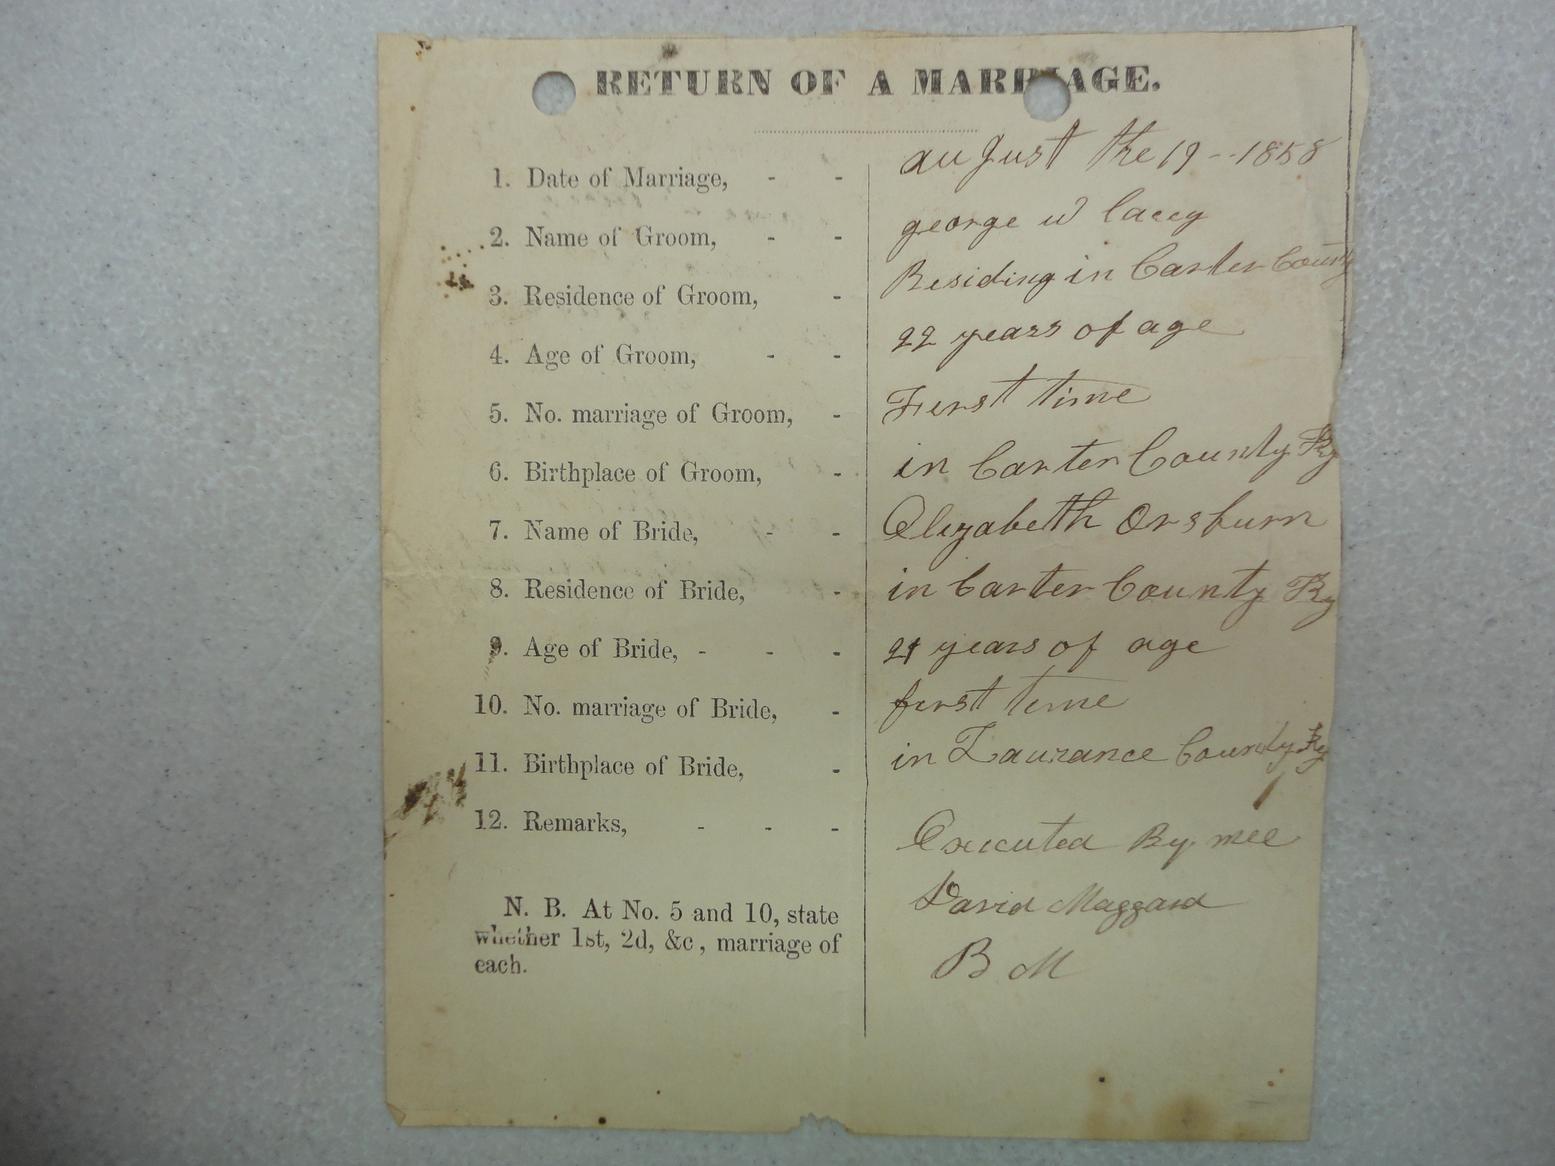 RETURN OF A MARRIAGE.
1. Date of Marriage, - - august the 19--1858
2. Name of Groom, - - george w lacey
3. Residence of Groom, - Residing in Carter County
4. Age of Groom, - - 22 years of age
5. No. marriage of Groom, - First time
6. Birthplace of Groom, - in Carter County Ky
7. Name of Bride, - - Elizabeth Orsburn
8. Residence of Bride, - in Carter County Ky
9. Age of Bride, - - - 21 years of age
10. No. marriage of Bride, - first time
11. Birthplace of Bride, - in Laurance County Ky
12. Remarks, - - - Executed By mee
David Maggard
B M
N. B. At No. 5 and 10, state
whether 1st, 2d, &c, marriage of
each.